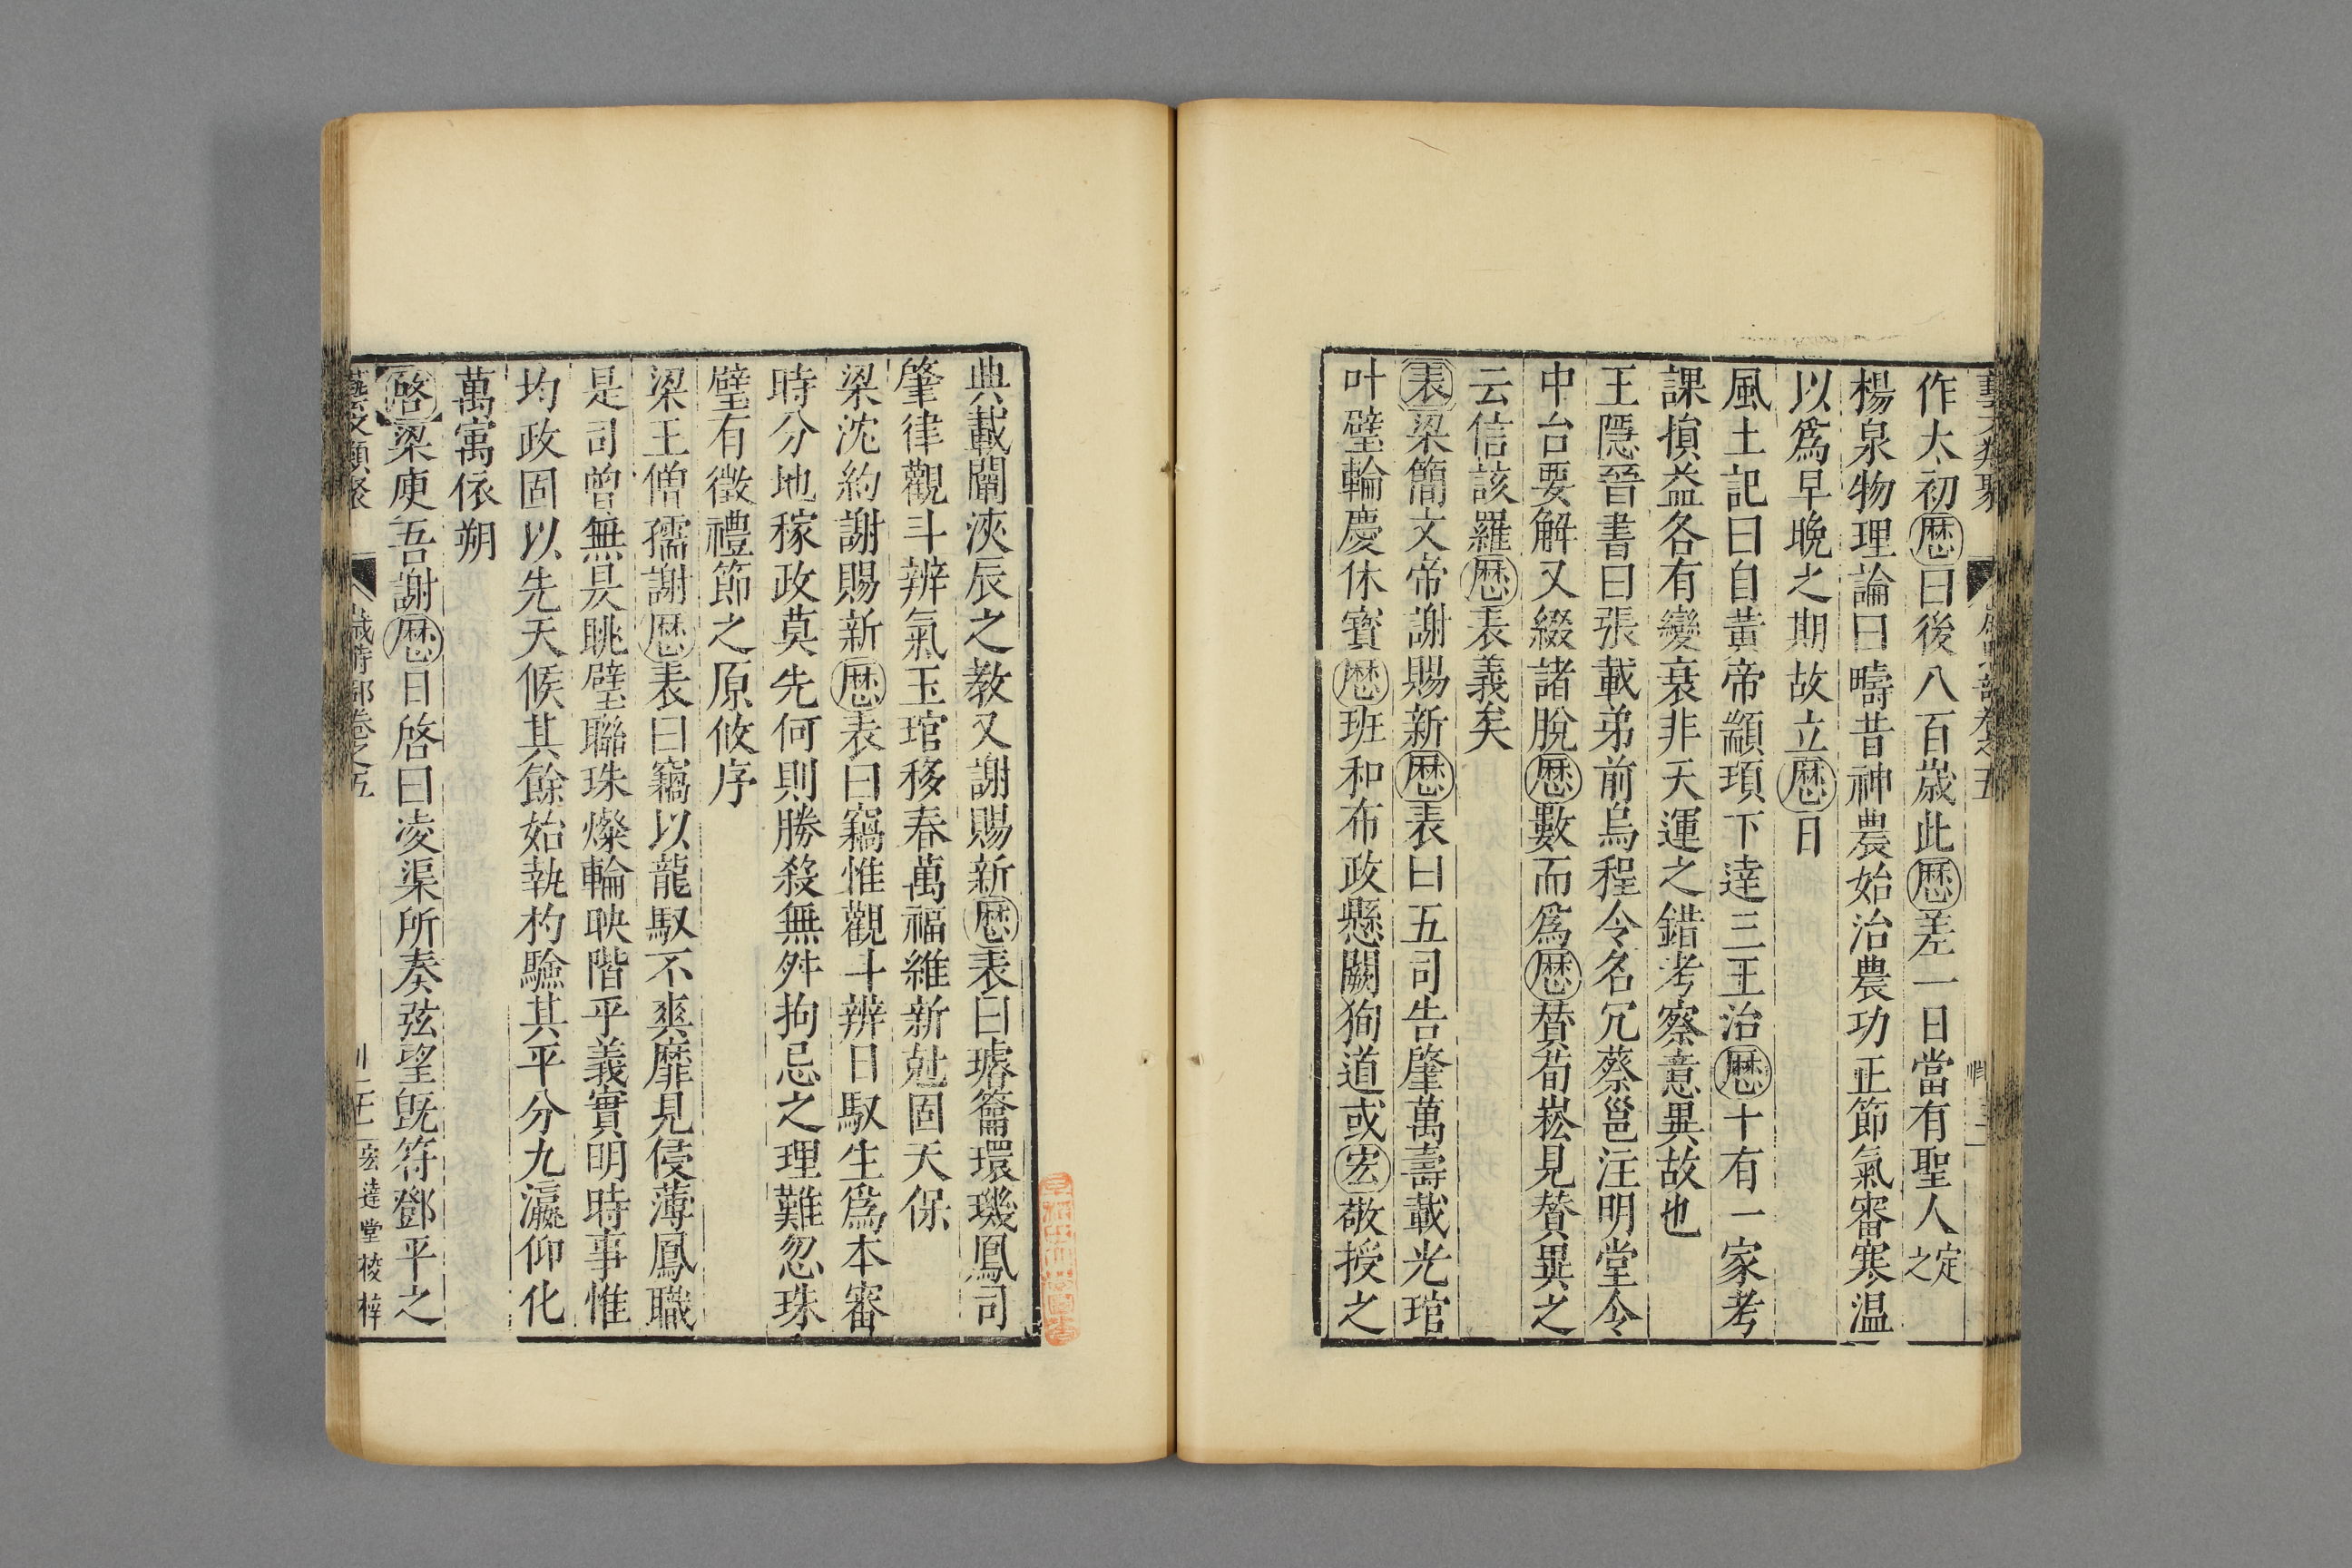 作太初曆曰後八百歲此曆差一日當有聖人定之
楊泉物理論曰疇昔神農始治農功正節氣審寒溫
以爲早晚之期故立曆日
風土記曰自黃帝顓頊下達三王治曆十有一家考
課損益各有變衰非天運之錯考察意異故也
王隱晉書曰張載弟前烏程令名冗蔡邕注明堂令
中台要解又綴諸脫曆數而爲曆贊荀崧見贊異之
云信該羅曆表義矣
表梁簡文帝謝賜新曆表曰五司告肇萬壽載光琯
叶璧輪慶休寶曆班和布政懸闕狥道或宏敬授之
典載闡浹辰之教又謝賜新曆表曰璿籥環璣鳳司
肇律觀斗辨氣玉琯移春萬福維新尅固天保
梁沈約謝賜新曆表曰竊惟觀斗辨日馭生爲本審
時分地稼政莫先何則勝殺無舛拘忌之理難忽珠
璧有徵禮節之原攸序
梁王僧孺謝曆表曰竊以龍馭不爽靡見侵薄鳳職
是司曾無昃眺璧聯珠燦輪映階平義實明時事惟
均政固以先天候其餘始執杓驗其平分九瀛仰化
萬㝢依朔
啓梁庾吾謝曆日啓曰凌渠所奏弦望旣符鄧平之
藝文類聚 歲時部卷之五 宏達堂校梓